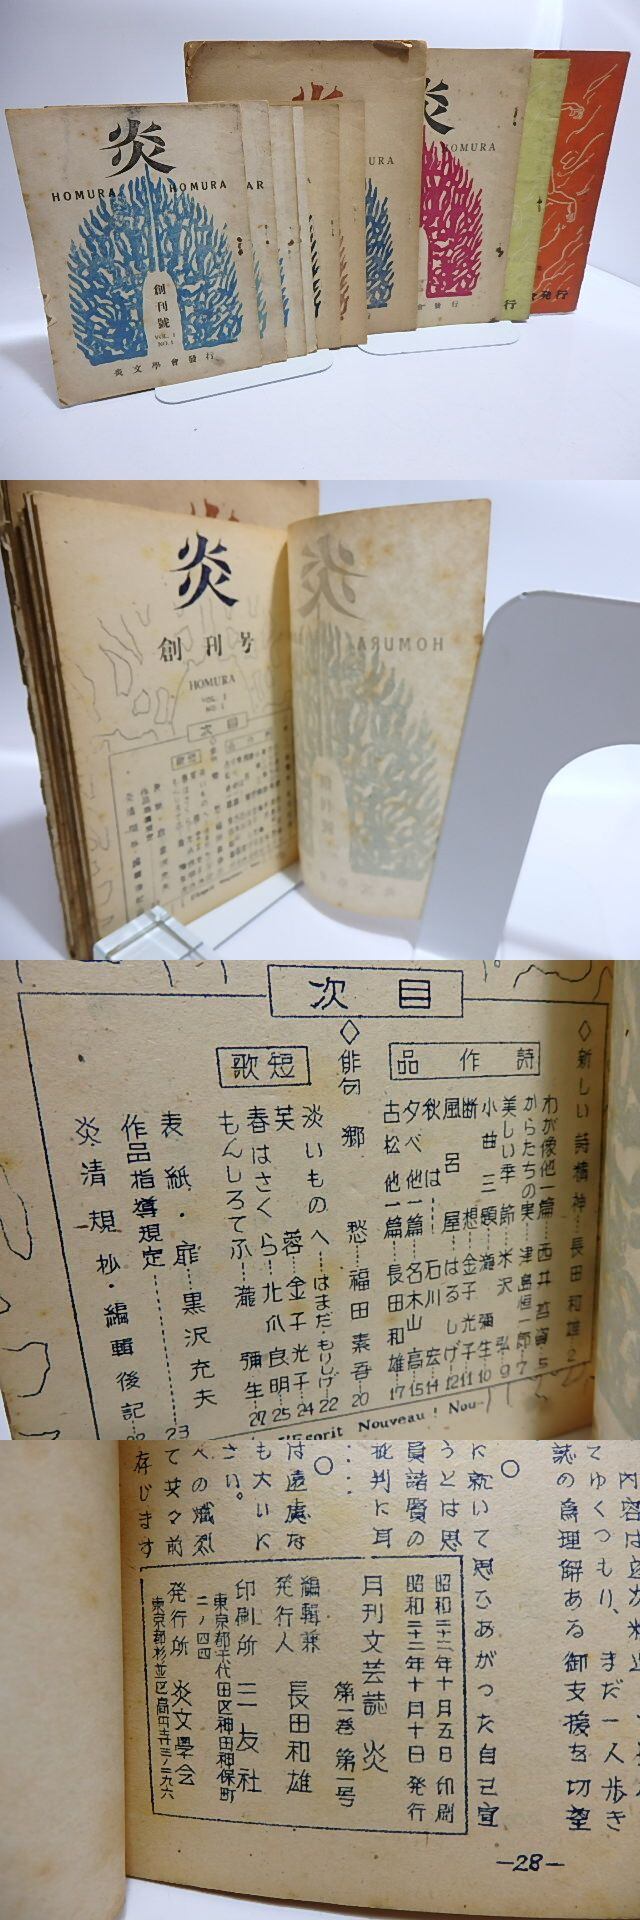 炎
HOMURA HOMURA
創刊號
VOL. 1
NO. 1
炎文學會發行
炎
HOMURA
炎
創刊号
HOMURA
VOL. 1
NO. 1
目次
HOMURA
炎
目次
◇新しい詩精神……長田和雄 2
詩作品
わが像他一篇……西井哲寛 5
からたちの実……津島恒一郎 7
美しい季節……米沢弘 9
小曲三題……瀧彌生 10
断想……金子光子 11
風呂屋……はるしげ 12
秋は……石川宏 14
夕べ他一篇……名木山高 15
古松他一篇……長田和雄 17
◇俳句 郷愁……福田素吾 20
短歌
淡いものへ……はまだ・もりしげ 22
芙蓉……金子光子 24
春はさくら……北爪良明 25
もんしろてふ……瀧彌生 27
表紙・扉……黒沢充夫
作品指導規定……23
炎清規抄・編輯後記
L'Esprit Nouveau! Nou-
てゆくつもり、まだ一人歩き
誌の為理解ある御支援を切望
○
に就いて思ひあがった自己宣
うとは思
員諸賢の
批判に耳
○
は遠慮な
も大いに
さい。
への熾烈
て茲々前
存じます
昭和二十二年十月五日印刷
昭和二十二年十月十日発行
月刊文芸誌 炎
第一巻第一号
編輯兼
発行人 長田和雄
印刷所 三友社
東京都千代田区神田神保町
二ノ四四
発行所 炎文學会
東京都杉並区高円寺三ノ二九六
—28—